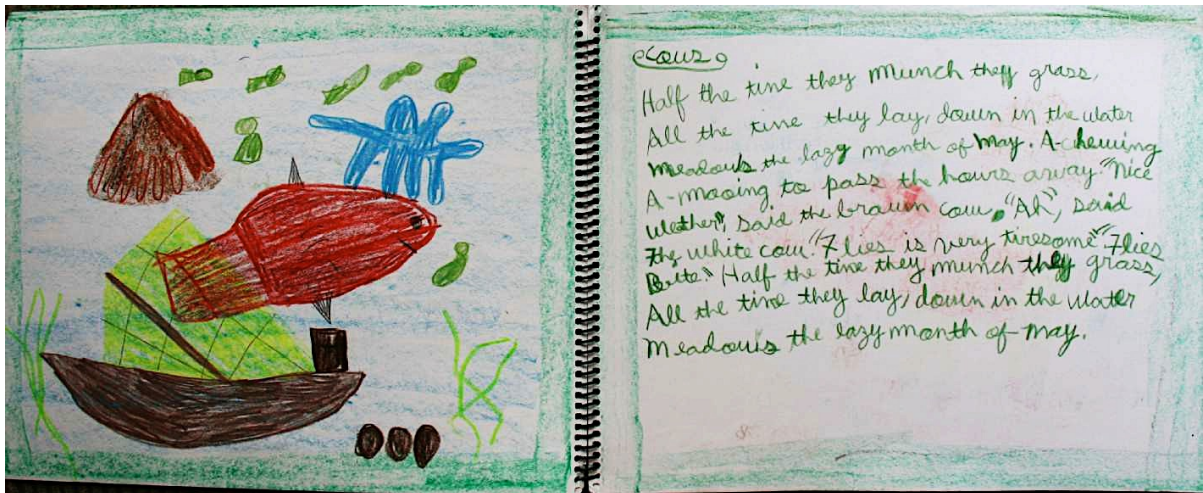 Cows
Half the tine they munch they grass,
All the tine they lay, down in the water
meadows the lazy month of may. A-chewing
A-mooing to pass the hours away. "Nice
wether", said the brawn cow, "Ah", said
The white cow. "Flies is very tiresome" "Flies
Bite" Half the tine they munch they grass,
All the tine they lay, down in the water
meadows the lazy month of may.